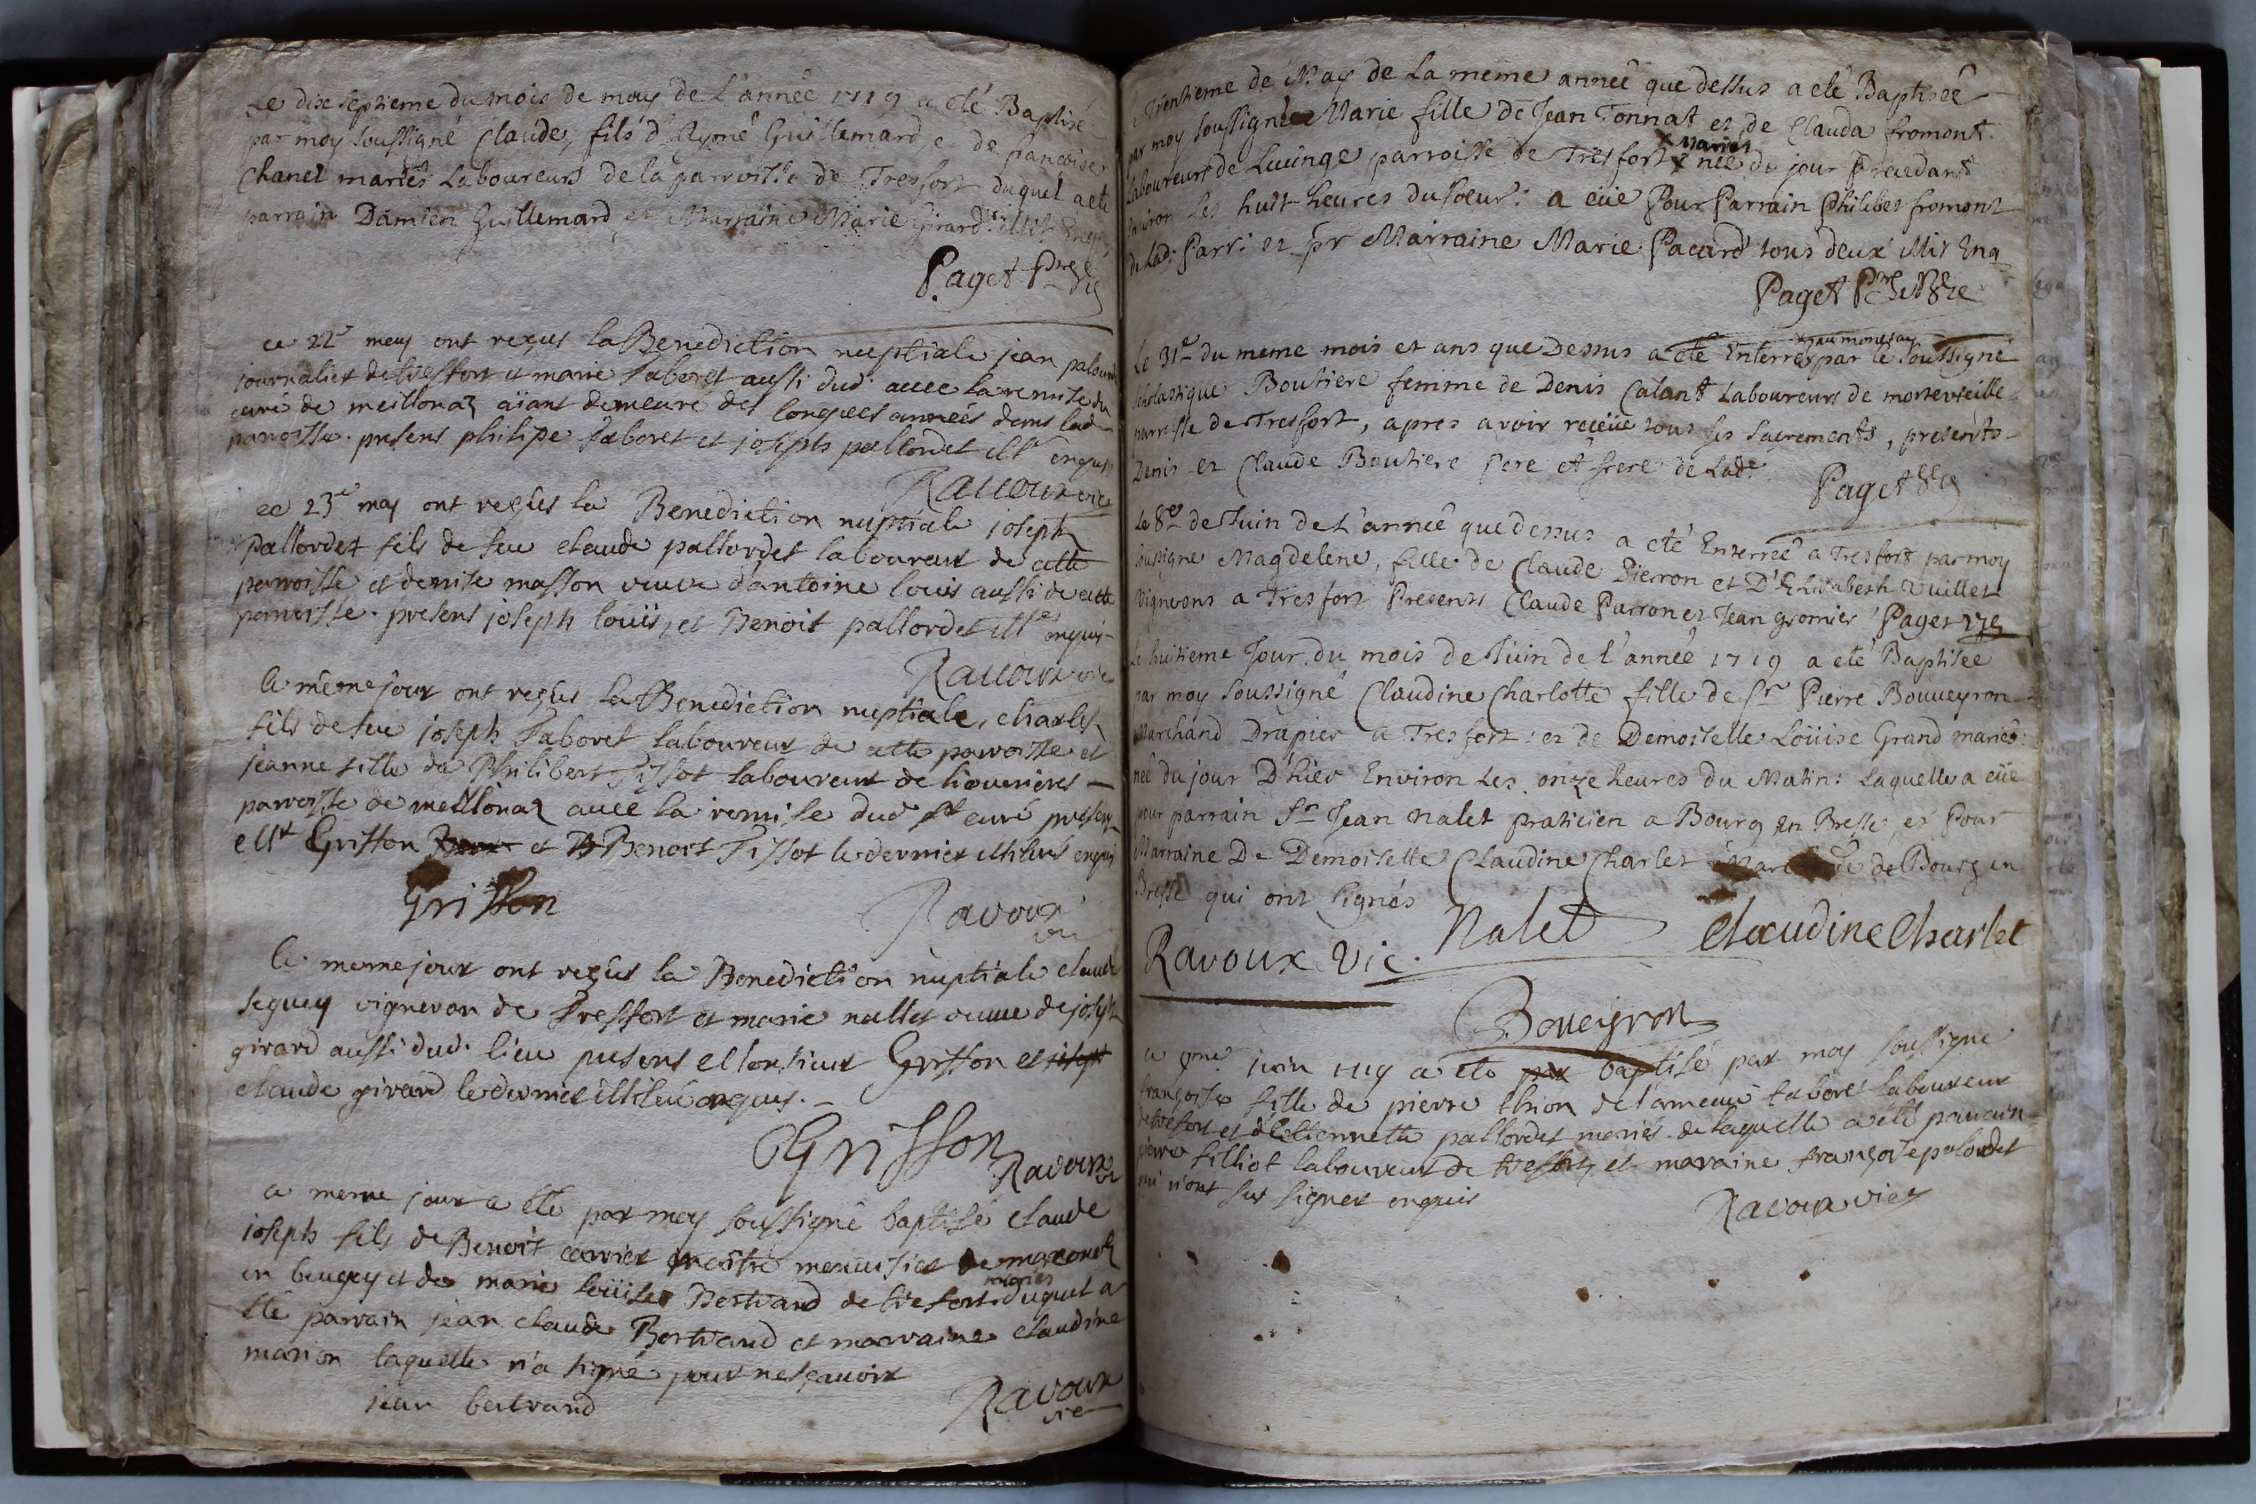 Le dixe septieme du mois de may de L'année 1719 a eté Baptisé
par moy soussigné Claude, fils d'Aymé Guillemard e de francoise
Chanel mariés Laboureurs de la parroisse de Tresfort duquel a eté
parrain Damien Guillemard et Marraine Marie Girard
Paget
ce 22e may ont reçus la Benediction nuptiale jean
journalier de tresfort et marie taboret aussi dud. avec la remise du
curé de meillonaz aïant demeuré des longues années dans lad
parroisse. presens philipe taboret et joseph pallordet ill enquis
Ravoux vic
ce 23e may ont reçus la Benediction nuptiale joseph
pallordet fils de feu claude pallordet laboureur de cette
parroisse et denise masson veuve d'antoine louis aussi de cette
parroisse. presens joseph loüis, et Benoit pallordet ill enquis
Ravoux vic
Ce même jour ont reçus la Benediction nuptiale, charles
fils de feu joseph taboret laboureur de cette parroisse et
jeanne fille de Philibert Tissot laboureur de
parroisse de meillonaz avec la remise dud sr curé presens
Mr Grisson et Benoit Tissot le dernier illiteré enquis
Grisson
Ravoux vic
Ce meme jour ont reçus la Benediction nuptiale claude
seguey vigneron de tresfort et marie nallet veuve de joseph
girard aussi dud. lieu presens Monsieur Grisson et
claude girard le dernier illiteré enquis.
Grisson
Ravoux vic
ce meme jour a été par moy soussigné baptisé claude
joseph fils de Benoit carrier maitre menuisier de
en beugey et de marie loüise Bertrand de tresfort mariés duquel a
été parrain jean claude Bertrand et marraine claudine
marion laquelle n'a signé pour ne sçavoir
jean bertrand
Ravoux vic
Trentieme de May de La meme année que dessus a eté Baptisée
par moy soussigné Marie fille de Jean Tonnat et de Clauda fromont
Laboureurs de Lucinge parroisse de Tresfort x mariés née du jour Precedant
Environ Les huit heures du soeur: a eüe Pour Parrain Philibet fromont
de Lad. Parr: et pr Marraine Marie Pacard tous deux illit Enq
Paget
Le 31e du meme mois et ans que Dessus a eté Enterrés par le soussigné
scholastique Boutiere femme de Denis Calant Laboureurs de
parroisse de Tresfort, apres avoir reçeüe tous ses sacrements, presents
Denis et Claude Boutiere Pere et frere de Lade.
Paget
Le 8e de Juin de L'année que dessus a eté Enterreé a Tresfort par moy
soussigne Magdelene, fille de Claude Pierron et D'Elisabeth Vuillet
Vignerons a Tresfort Presents Claude Purron et Jean gromier Paget
Le huitieme Jour du mois de Juin de l'année 1719 a eté Baptisée
par moy soussigné Claudine Charlotte fille de Sr Pierre Bouveyron
Marchand Drapier a Tresfort: et de Demoiselle Loüise Grand mariés:
née du jour D'hier Environ Les onze heures du Matin: Laquelle a eüe
pour parrain Sr Jean Nalet praticien a Bourg En Bresse, et Pour
Marraine De Demoiselle Claudine Charlet de Bourg en
Bresse qui ont signés
Ravoux Vic. Nalet Claudine Charlet
Boveyron
ce 9me juin 1719 a eté par baptisé par moy soussigné
françoise fille de pierre thion taboret laboureur
de tresfort et d'Estiennette pallordet mariés. de laquelle a eté parrain
pierre filliot laboureur de tresfort, et maraine françoise palordet
qui n'ont sus signer enquis
Ravoux vic